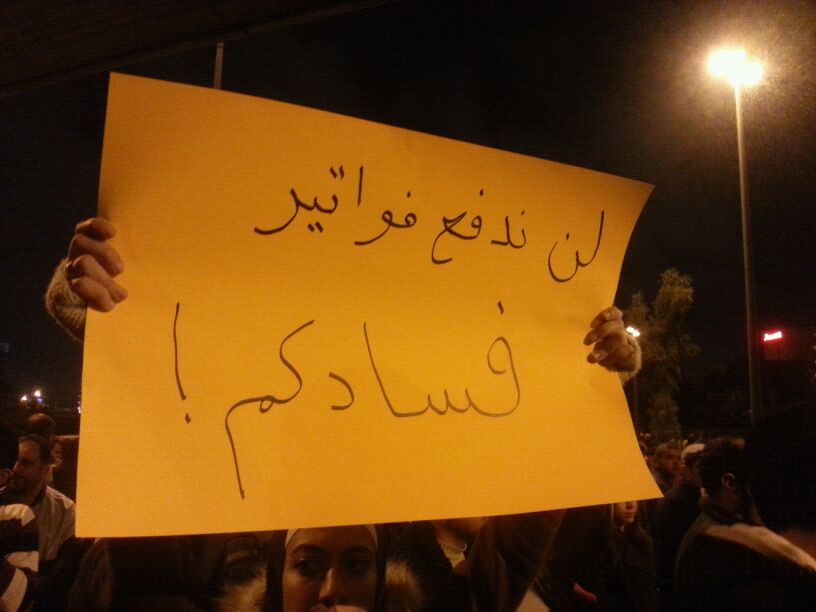 لن ندفع فواتير
فسادكم !